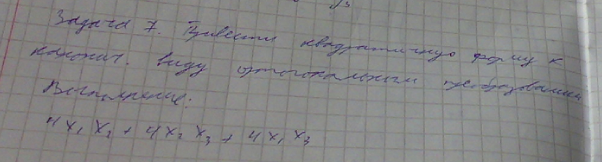 Задача 7. Привести квадратичную форму к
канонич. виду ортогональным преобразованием
Выполнение:
4x₁x₂ + 4x₂x₃ + 4x₁x₃